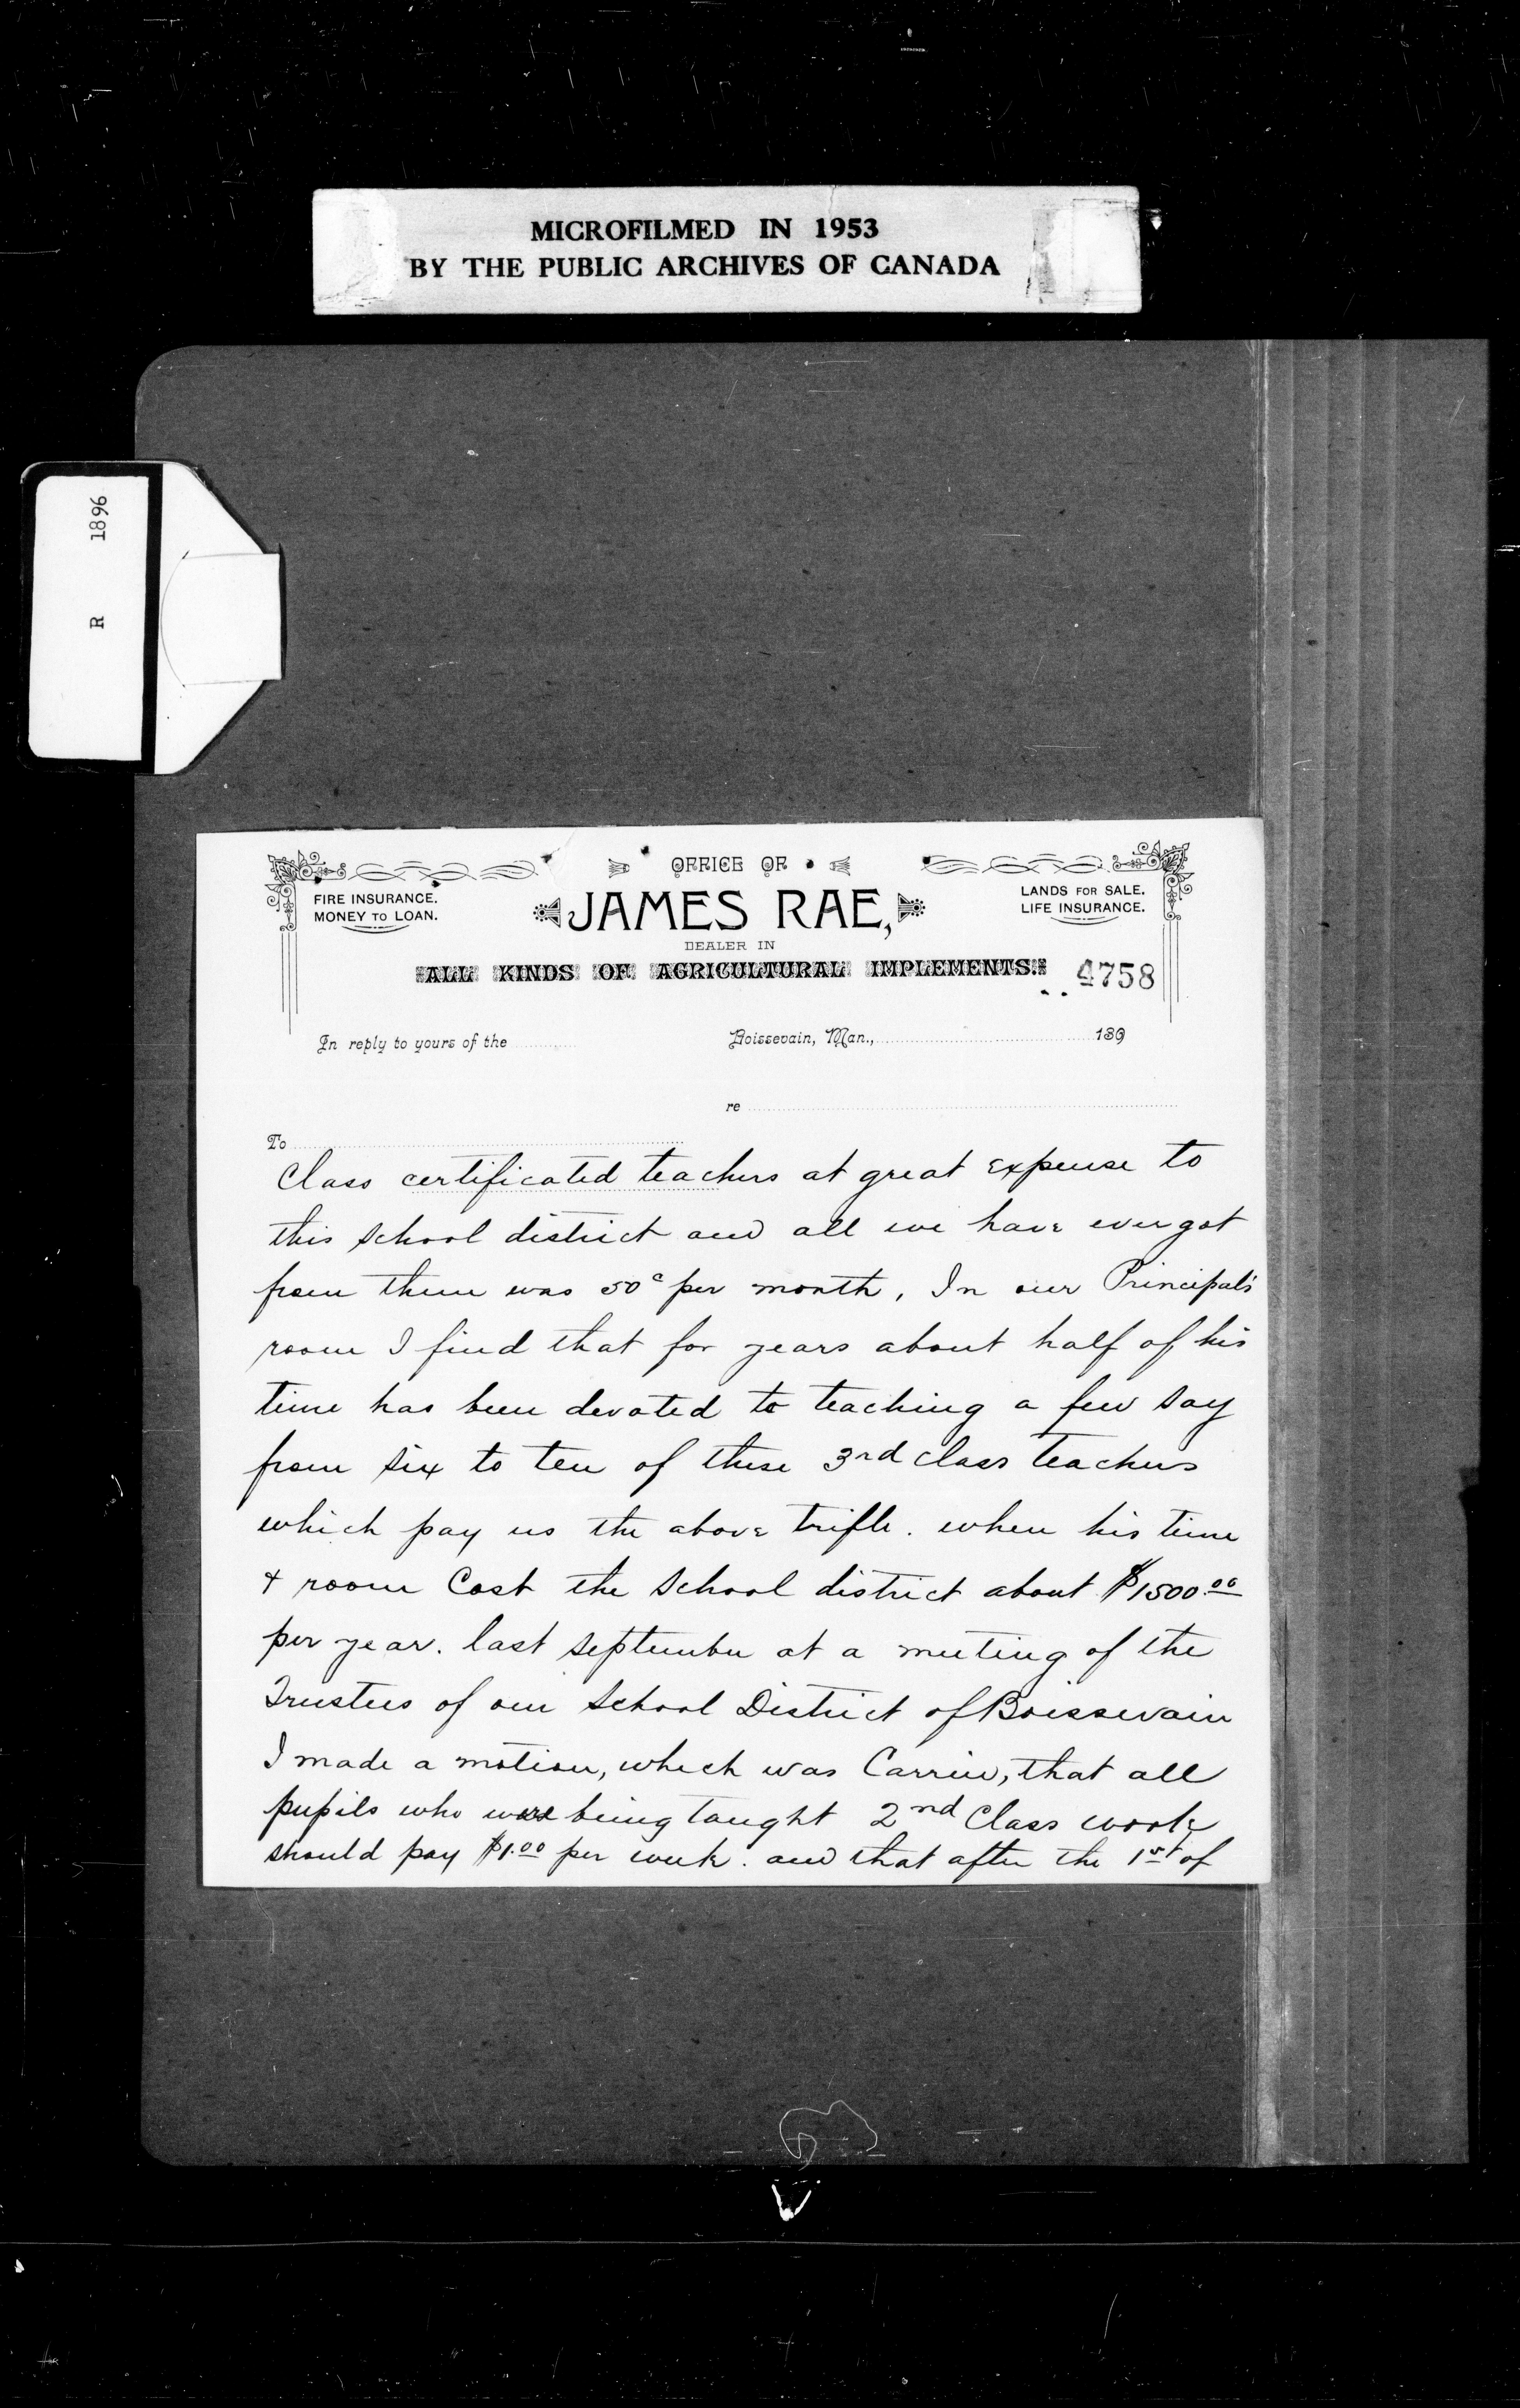 MICROFILMED IN 1953
BY THE PUBLIC ARCHIVES OF CANADA
R 1896
OFFICE OF
FIRE INSURANCE.
MONEY TO LOAN.
JAMES RAE,
LANDS FOR SALE.
LIFE INSURANCE.
DEALER IN
ALL KINDS OF AGRICULTURAL IMPLEMENTS.
4758
In reply to yours of the
Boissevain, Man., 189
re
To
Class certificated teachers at great expense to
this school district and all we have ever got
from them was 50c per month, In our Principal's
room I find that for years about half of his
time has been devoted to teaching a few say
from six to ten of these 3rd class teachers
which pay us the above trifle. when his time
& room Cost the school district about $1500.00
per year. last september at a meeting of the
Trustees of our School District of Boissevain
I made a motion, which was Carried, that all
pupils who were being taught 2nd Class work
should pay $1.00 per week. and that after the 1st of